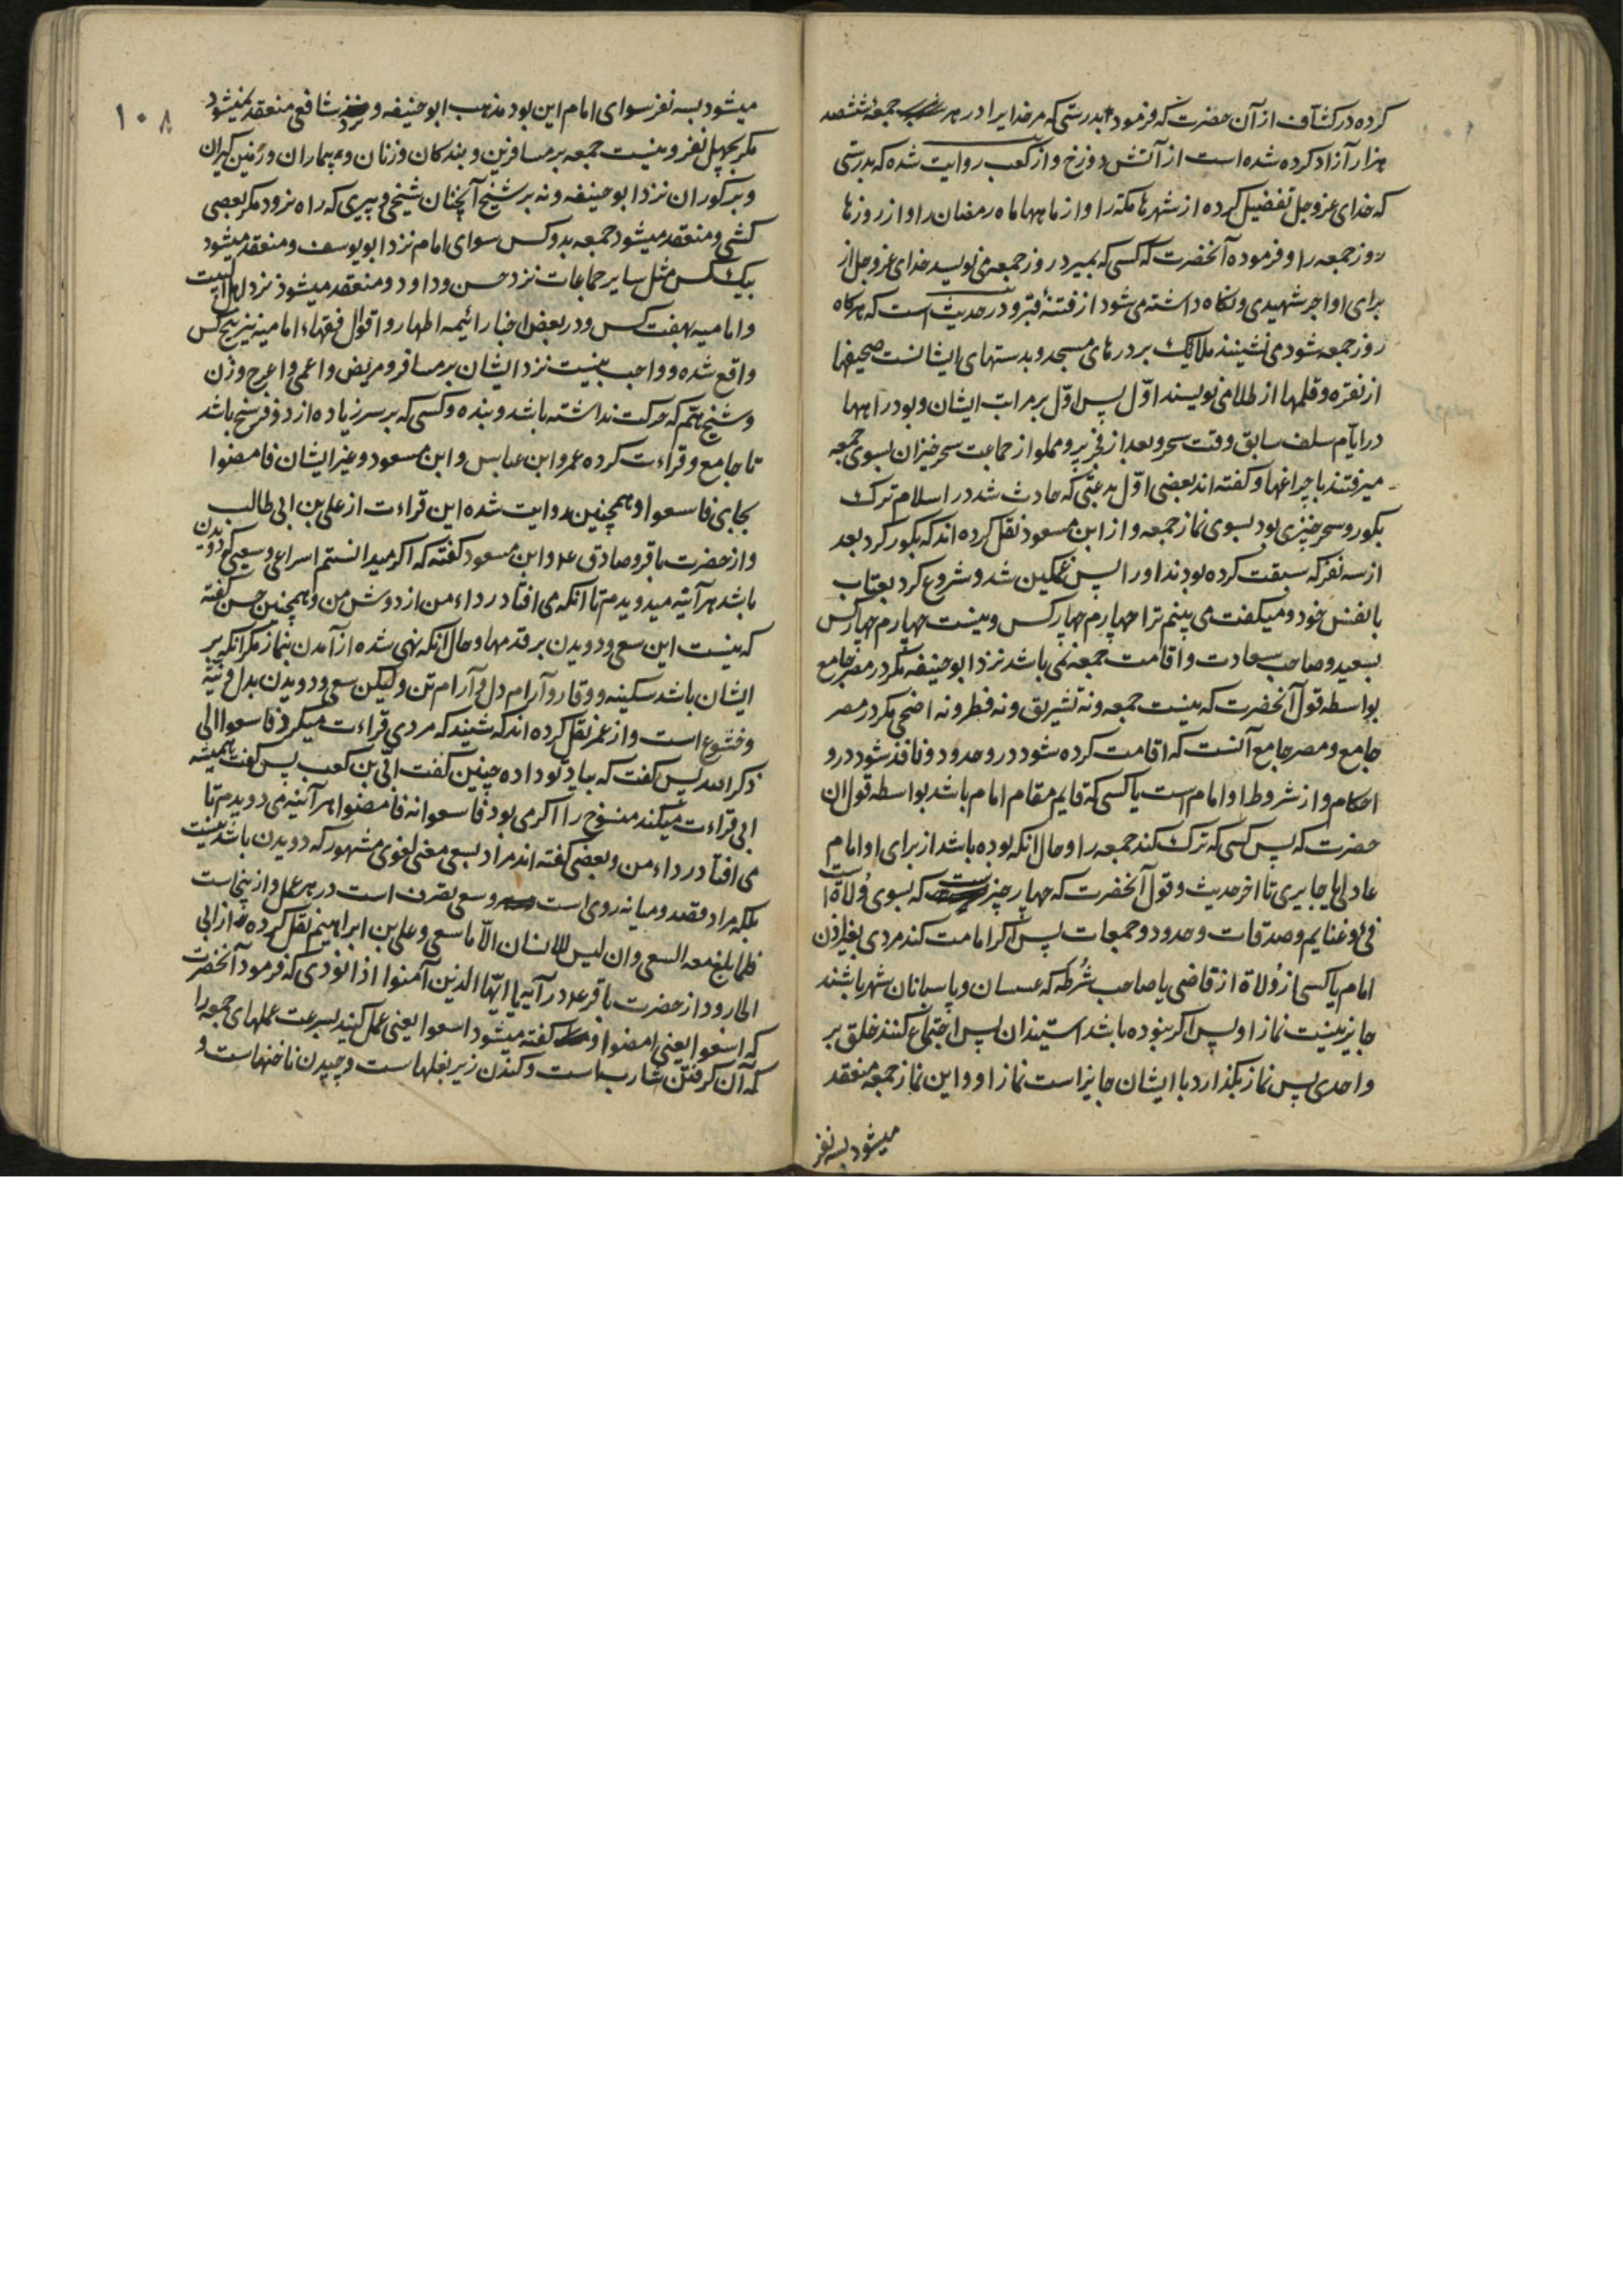 کرده در کشاف از آن حضرت که فرمود بدرستی که مر خدایرا در هر جمعه ششصد
هزار آزاد کرده شده است از آتش دوزخ و از کعب روایت شده که بدرستی
که خدای عزوجل تفضیل کرده از شهرها مکه را و از ماهها ماه رمضان را و از روزها
روز جمعه را و فرموده آنحضرت که کسی که بمیرد روز جمعه می نویسد خدای عزوجل از
برای او اجر شهیدی و نگاه داشته می شود از فتنهٔ قبر و در حدیث است که هرکاه
روز جمعه شود می نشینند ملائک بر درهای مسجد و بدستهای ایشانست صحیفها
از نقره و قلمها از طلا می نویسند اول پس اول بر مراتب ایشان و بود راهها
در ایام سلف سابق وقت سحر و بعد از فجر پر و مملو از جماعت سحرخیزان بسوی جمعه
میرفتند با چراغها و کفته اند بعضی اول بدعتی که حادث شد در اسلام ترک
بکور و سحرخیزی بود بسوی نماز جمعه و از ابن مسعود نقل کرده اند که بکور کرد بعد
از سه نفر که سبقت کرده بودند او را پس غمکین شد و شروع کرد بعتاب
با نفس خود و میکفت می بینم ترا چهارم چهار کس و نیست چهارم چهار کس
بسعید و صاحب سعادت و اقامت جمعه نمی باشد نزد ابو حنیفه مکر در مصر جامع
بواسطه قول آنحضرت که نیست جمعه و نه تشریق و نه فطر و نه اضحی مکر در مصر
جامع و مصر جامع آنست که اقامت کرده شود در و حدود و نافذ شود در و
احکام و از شروط او امام است یا کسی که قایم مقام امام باشد بواسطه قول ان
حضرت که پس کسی که ترک کند جمعه را و حال انکه بوده باشد از برای او امام
عادل یا جایری تا اخر حدیث و قول آنحضرت که چهار چیز است که بسوی وُلاة است
فئ و غنایم و صدقات و حدود و جمعات پس اکر امامت کند مردی بغیر اذن
امام یا کسی از وُلاة از قاضی یا صاحب شُرطه که عسسان و پاسبانان شهر باشند
جایز نیست نماز او پس اکر نبوده باشد استیذان پس اجتماع کنند خلق بر
واحدی پس نماز بکذارد با ایشان جایز است نماز او و این نماز جمعه منعقد
میشود بسه نفر
۱۰۸
میشود بسه نفر سوای امام این بود مذهب ابو حنیفه و نزد شافعی منعقد نمیشود
مکر بچهل نفر و نیست جمعه بر مسافرین و بندکان و زنان و بیماران و زمین کیران
و بر کوران نزد ابو حنیفه و نه بر شیخ آنچنان شیخی و پیری که راه نرود مکر بعصی
کشی و منعقد میشود جمعه بدو کس سوای امام نزد ابو یوسف و منعقد میشود
بیک کس مثل سایر جماعات نزد حسن و داود و منعقد میشود نزد اهل البیت
و امامیه بهفت کس و در بعض اخبار ائیمه اطهار و اقوال فقهاء امامیه نیز پنج کس
واقع شده و واجب نیست نزد ایشان بر مسافر و مریض و اعمی و اعرج و زن
و شیخ هم که حرکت نداشته باشد و بنده و کسی که بر سر زیاده از دو فرسخ باشد
تا جامع و قراءت کرده عمر و ابن عباس و ابن مسعود و غیر ایشان فامضوا
بجای فاسعوا و همچنین روایت شده این قراءت از علی بن ابی طالب
و از حضرت باقر و صادق ع و ابن مسعود کفته که اکر میدانستم اسراعی و سعیی که دویدن
باشد هر آینه میدویدم تا انکه می افتاد رداء من از دوش من و همچنین حسن کفته
که نیست این سعی و دویدن بر قدمها و حال انکه نهی شده از آمدن بنماز مکر انکه بر
ایشان باشد سکینه و وقار و آرام دل و آرام تن و لیکن سعی و دویدن بدل و نیه
و خشوع است و از عمر نقل کرده اند که شنید که مردی قراءت میکرد فاسعوا الی
ذکر الله پس کفت که بیاد تو داده چنین کفت ابی بن کعب پس کفت همیشه
ابی قراءت میکند منسوخ را اکر می بود فاسعوا نه فامضوا هر آینه می دویدم تا
می افتاد رداء من و بعضی کفته اند مراد بسعی معنی لغوی مشهور که دویدن باشد نیست
بلکه مراد قصد و میانه روی است و سعی تصرف است در هر عمل و از ینجاست
فلما بلغ معه السعی و ان لیس للانسان الا ما سعی و علی بن ابراهیم نقل کرده از ابی
الجارود از حضرت باقر ع در آیه یا ایها الذین آمنوا اذا نودی که فرمود آنحضرت
که اسعوا یعنی امضوا و کفته میشود اسعوا یعنی عمل کنید بسرعت عملهای جمعه را
که آن کرفتن شارب است و کندن زیر بغلهاست و چیدن ناخنهاست و